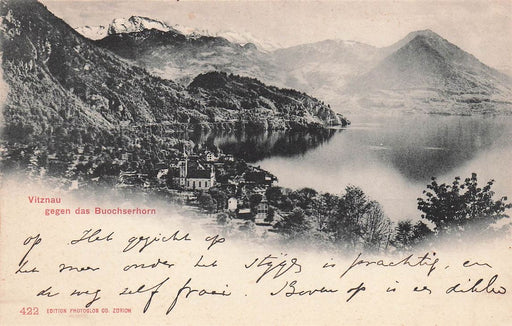 Vitznau
gegen das Buochserhorn
op Het gezicht op
het meer onder het stijgen is prachtig, en
de weg zelf fraai. Boven op is er dikke
422 EDITION PHOTOGLOB CO. ZÜRICH